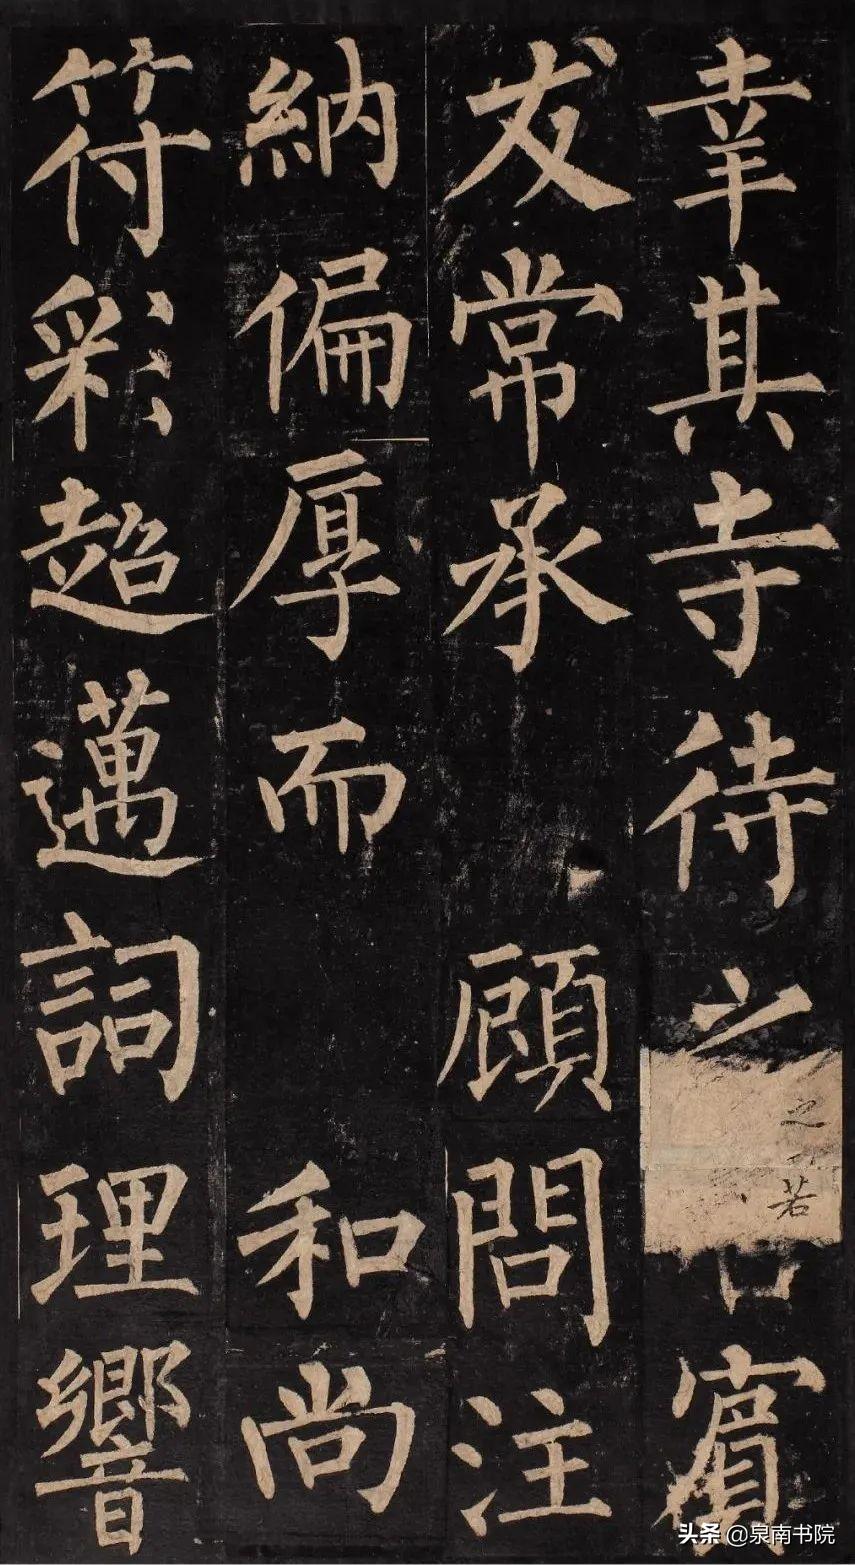 幸其寺待之若賓
友常承 顧問注
納偏厚而 和尚
符彩超邁詞理響
头条 @泉南书院